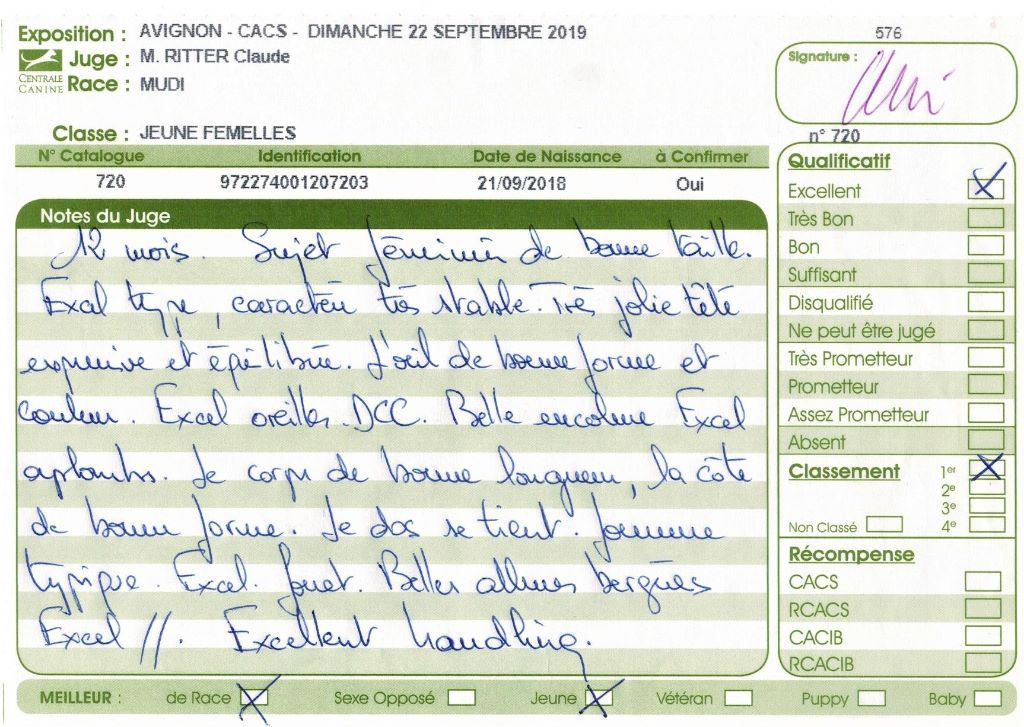 Exposition : AVIGNON - CACS - DIMANCHE 22 SEPTEMBRE 2019
576
Juge : M. RITTER Claude
Signature :
CENTRALE CANINE
Race : MUDI
Classe : JEUNE FEMELLES
n° 720
N° Catalogue Identification Date de Naissance à Confirmer
720 972274001207203 21/09/2018 Oui
Notes du Juge
12 mois. Sujet féminin de bonne taille.
Excel type, caractère très stable. Très jolie tête
expressive et équilibrée. L'oeil de bonne forme et
couleur. Excel oreilles. DCC. Belle encolure Excel
aplombs. Le corps de bonne longueur, la côte
de bonne forme. Le dos se tient.
typique. Excel. fouet. Belles allures bergères
Excel //. Excellent handling.
Qualificatif
Excellent
Très Bon
Bon
Suffisant
Disqualifié
Ne peut être jugé
Très Prometteur
Prometteur
Assez Prometteur
Absent
Classement 1er
2e
3e
Non Classé 4e
Récompense
CACS
RCACS
CACIB
RCACIB
MEILLEUR : de Race Sexe Opposé Jeune Vétéran Puppy Baby